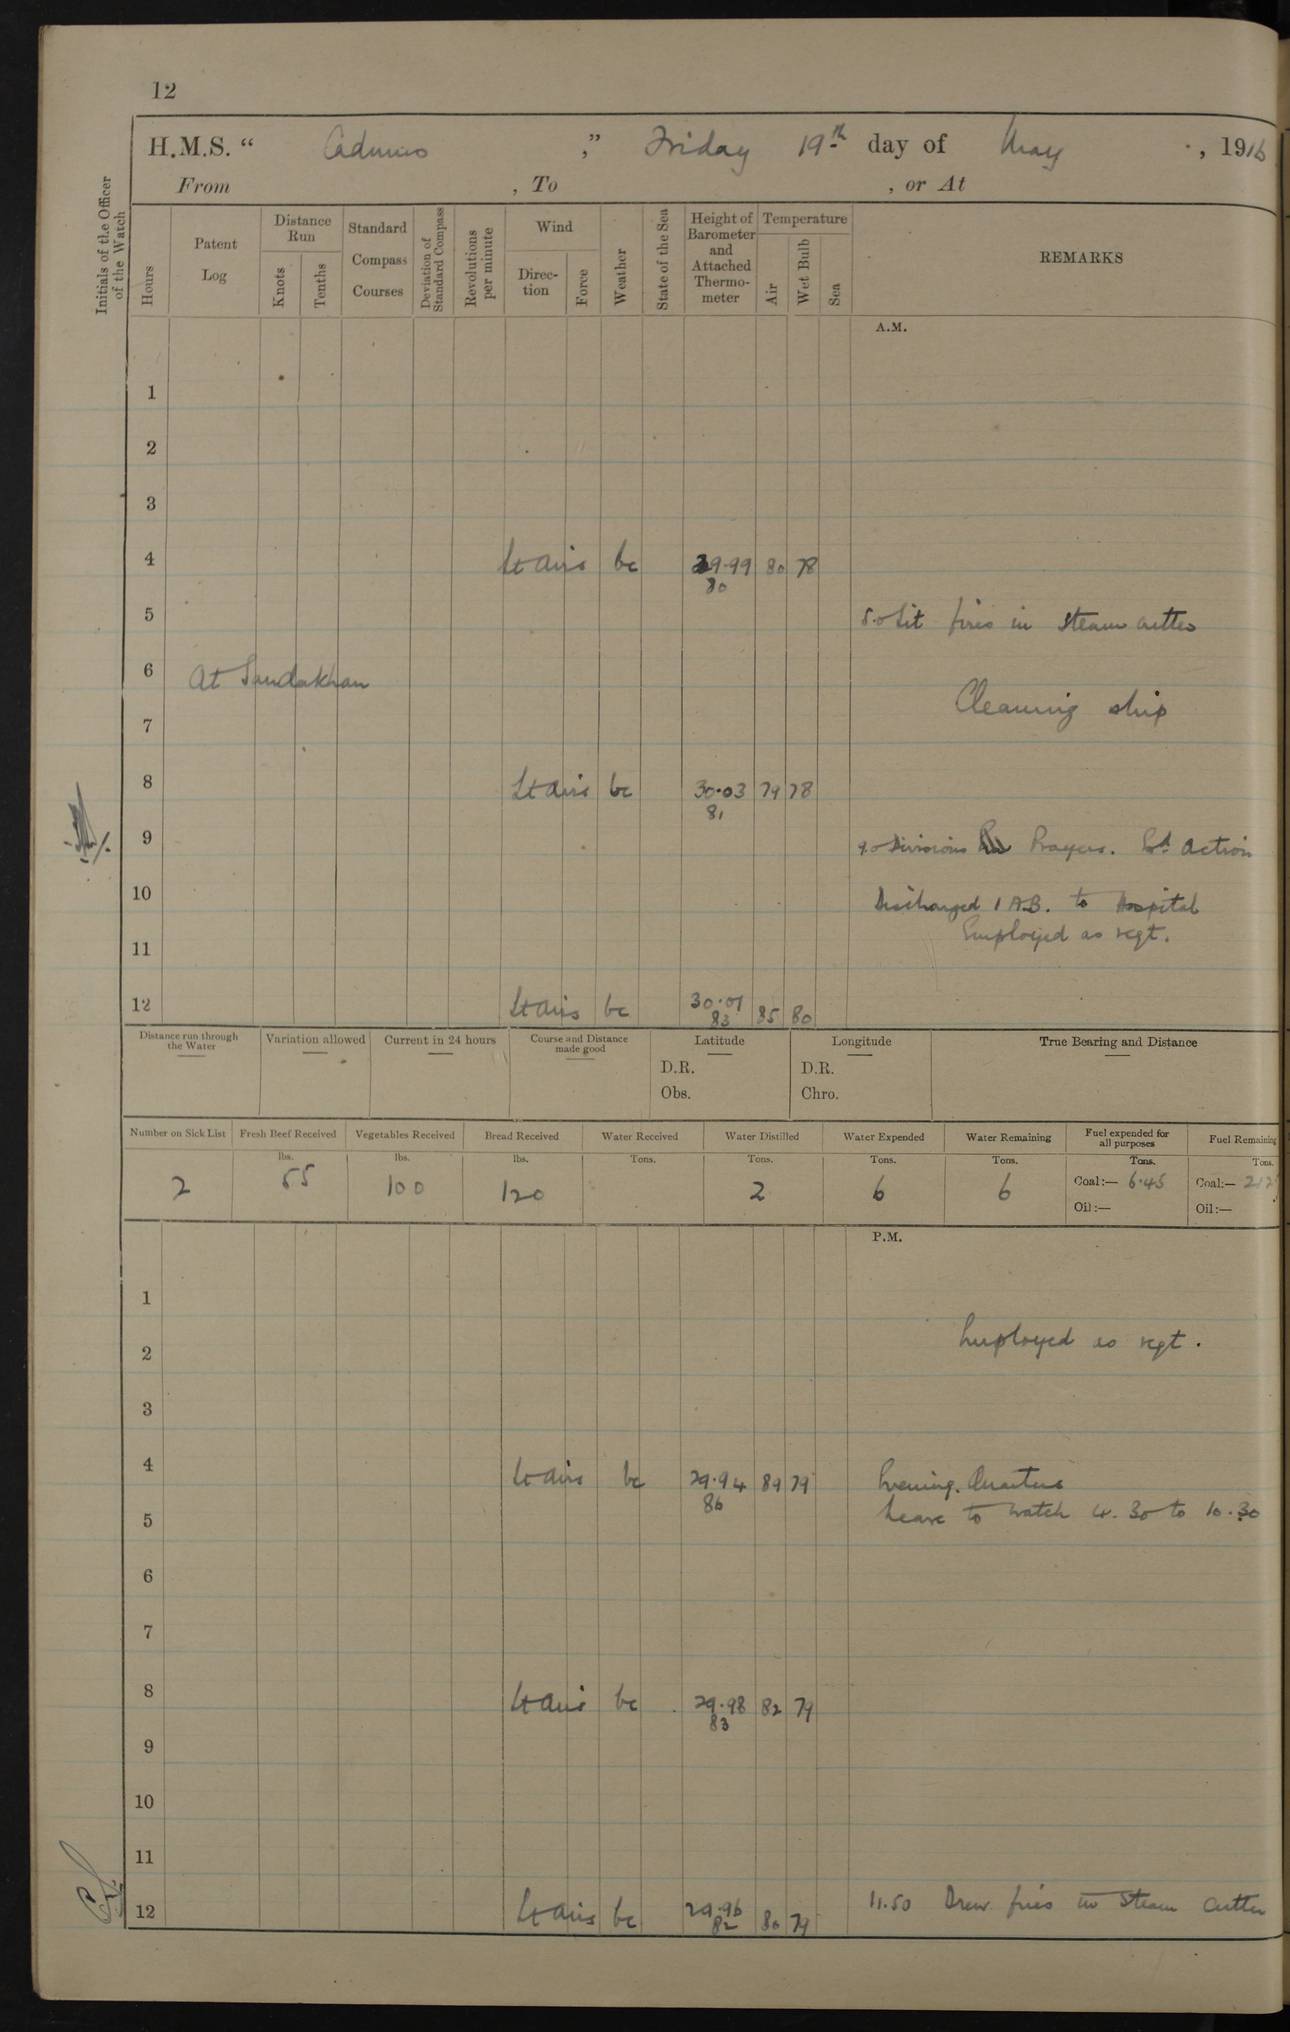 12
H.M.S. " Cadmus ," Friday 19th day of May , 1916
From , To , or At
Initials of the Officer of the Watch
Hours
Patent Log
Distance Run
Knots
Tenths
Standard Compass Courses
Deviation of Standard Compass
Revolutions per minute
Wind
Direction
Force
Weather
State of the Sea
Height of Barometer and Attached Thermometer
Temperature
Air
Wet Bulb
Sea
REMARKS
A.M.
1
2
3
4 Lt airs bc 29.99 80 78
80
5 5.0 Lit fires in Steam cutter
6 At Sandakhan
Cleaning ship
7
8 Lt airs bc 30.03 79 78
81
9 9.0 Divisions Prayers. Gd. Action
10 Discharged 1 A.B. to Hospital
Employed as reqt.
11
12 Lt airs bc 30.01 85 80
83
Distance run through the Water
Variation allowed
Current in 24 hours
Course and Distance made good
Latitude
D.R.
Obs.
Longitude
D.R.
Chro.
True Bearing and Distance
Number on Sick List 2
Fresh Beef Received lbs. 55
Vegetables Received lbs. 100
Bread Received lbs. 120
Water Received Tons.
Water Distilled Tons. 2
Water Expended Tons. 6
Water Remaining Tons. 6
Fuel expended for all purposes Tons.
Coal:— 6.45
Oil:—
Fuel Remaining Tons.
Coal:—
Oil:—
P.M.
1
Employed as reqt.
2
3
4 Lt airs bc 29.94 89 79 Evening Quarters
86
Leave to watch 4.30 to 10.30
5
6
7
8 Lt airs bc 29.98 82 79
83
9
10
11
12 Lt airs bc 29.96 80 79 11.50 Drew fires in Steam Cutter
82